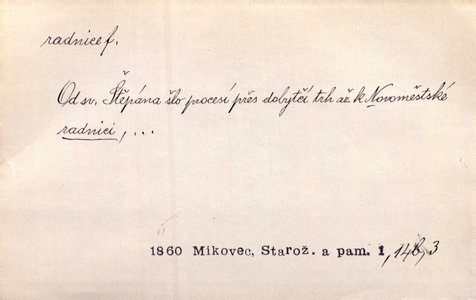 radnice f.
Od sv. Štěpána šlo procesí přes dobytčí trh až k Novoměstské
radnici, ...
1860 Mikovec, Starož. a pam. 1, 148, 3